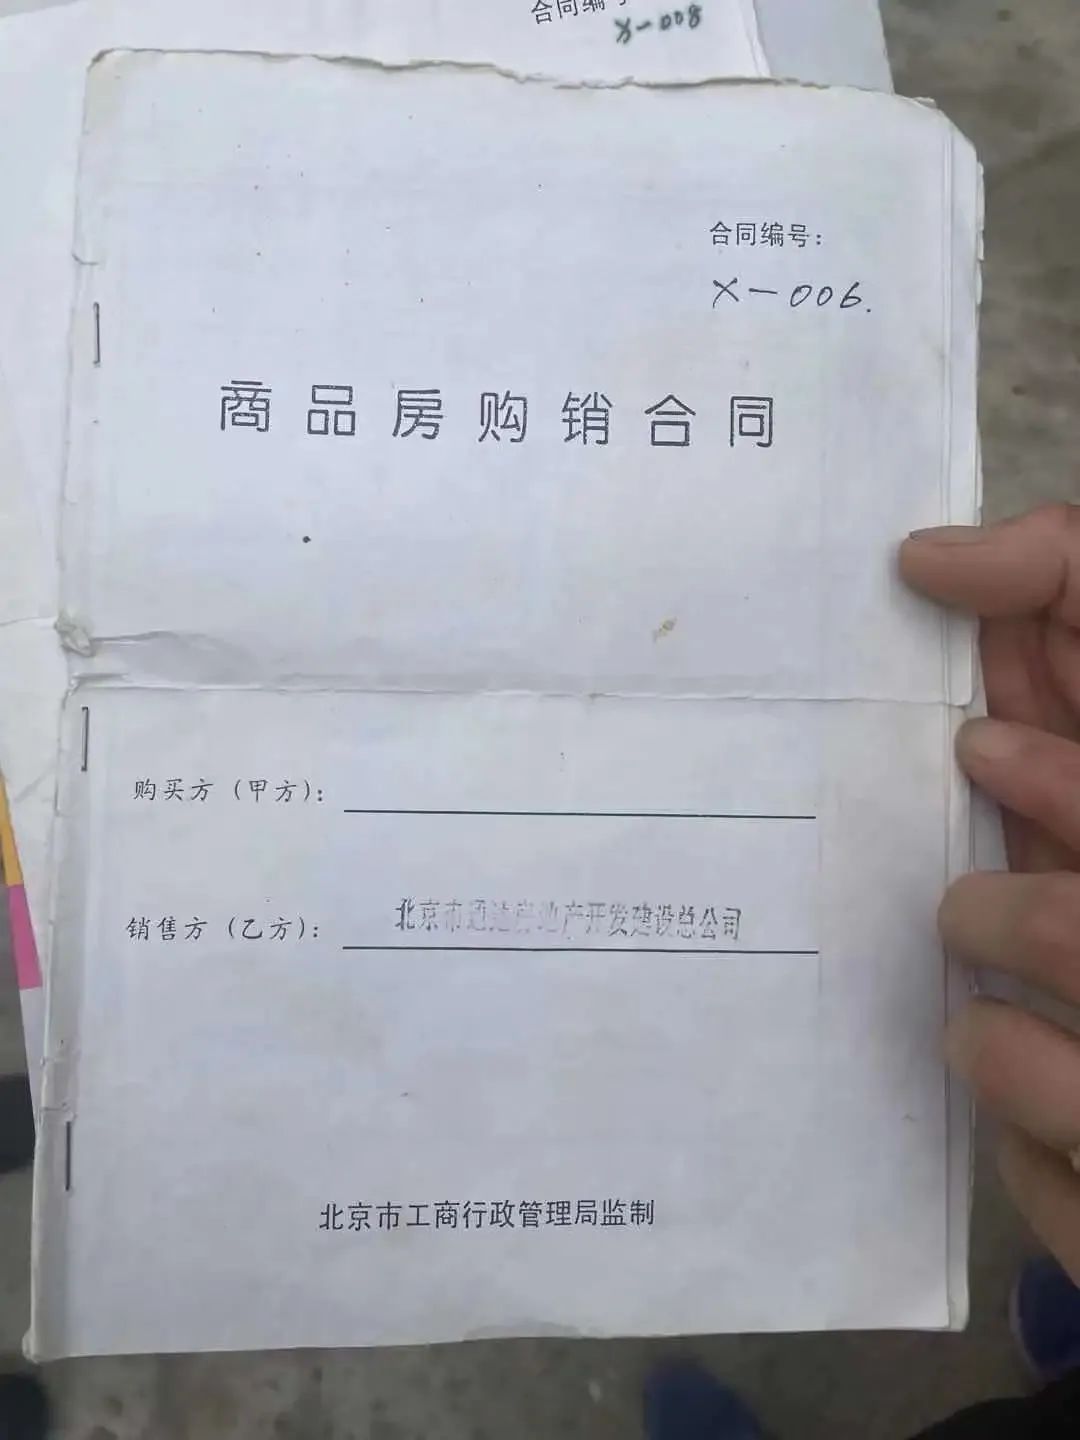 合同编号
X-008
合同编号：
X-006.
商品房购销合同
购买方（甲方）：
销售方（乙方）： 北京市通达房地产开发建设总公司
北京市工商行政管理局监制